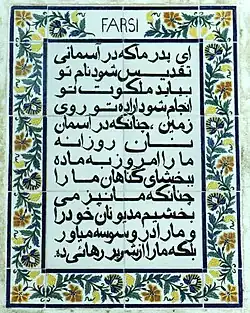 FARSI
ای پدر ماکه در آسمانی
تقدیس شود نام تو
بیاید ملکوت تو
انجام شود اراده تو روی
زمین، چنانکه در آسمان
نان روزانه
ما را امروز به ما ده
ببخشای گناهان ما را
چنانکه ما نیز می
بخشیم مدیونان خود را
و ما را در وسوسه میاور
بلکه ما را از شریر رهائی ده.